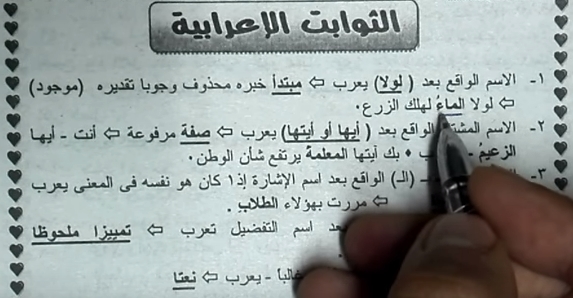 الثوابت الإعرابية
١- الاسم الواقع بعد ( لولا) يعرب ⇦ مبتدأ خبره محذوف وجوبا تقديره (موجود)
⇦ لولا الماءُ لهلك الزرع.
٢- الاسم الواقع بعد ( أيها أو أيتها) يعرب ⇦ صفة مرفوعة ⇦ أنت - أيها
الزعيمُ • بك أيتها المعلمة يرتفع شأن الوطن.
٣- (الـ) الواقع بعد اسم الإشارة إذا كان هو نفسه فى المعنى يعرب
⇦ مررت بهؤلاء الطلاب.
اسم التفضيل تعرب ⇦ تمييزا ملحوظا
غالباً - يعرب ⇦ نعتا